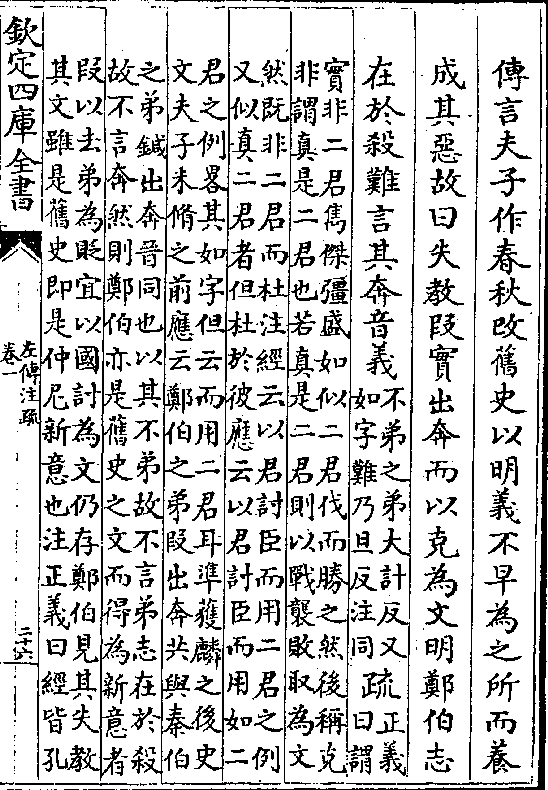 傳言夫子作春秋改舊史以明義不早為之所而養
成其惡故曰失教段實出奔而以克為文明鄭伯志
在於殺難言其奔音義
不弟之弟大計反又
如字難乃旦反注同
疏
正義
曰謂
實非二君雋傑彊盛如似二君伐而勝之然後稱克
非謂真是二君也若真是二君則以戰襲敗取為文
然既非二君而杜注經云以君討臣而用二君之例
又似真二君者但杜於彼應云以君討臣而用如二
君之例畧其如字但云而用二君耳準獲麟之後史
文夫子未脩之前應云鄭伯之弟段出奔共與秦伯
之弟鍼出奔晉同也以其不弟故不言弟志在於殺
故不言奔然則鄭伯亦是舊史之文而得為新意者
段以去弟為貶宜以國討為文仍存鄭伯見其失教
其文雖是舊史即是仲尼新意也注正義曰經皆孔
欽定四庫全書
左傳注疏
卷一
二十六